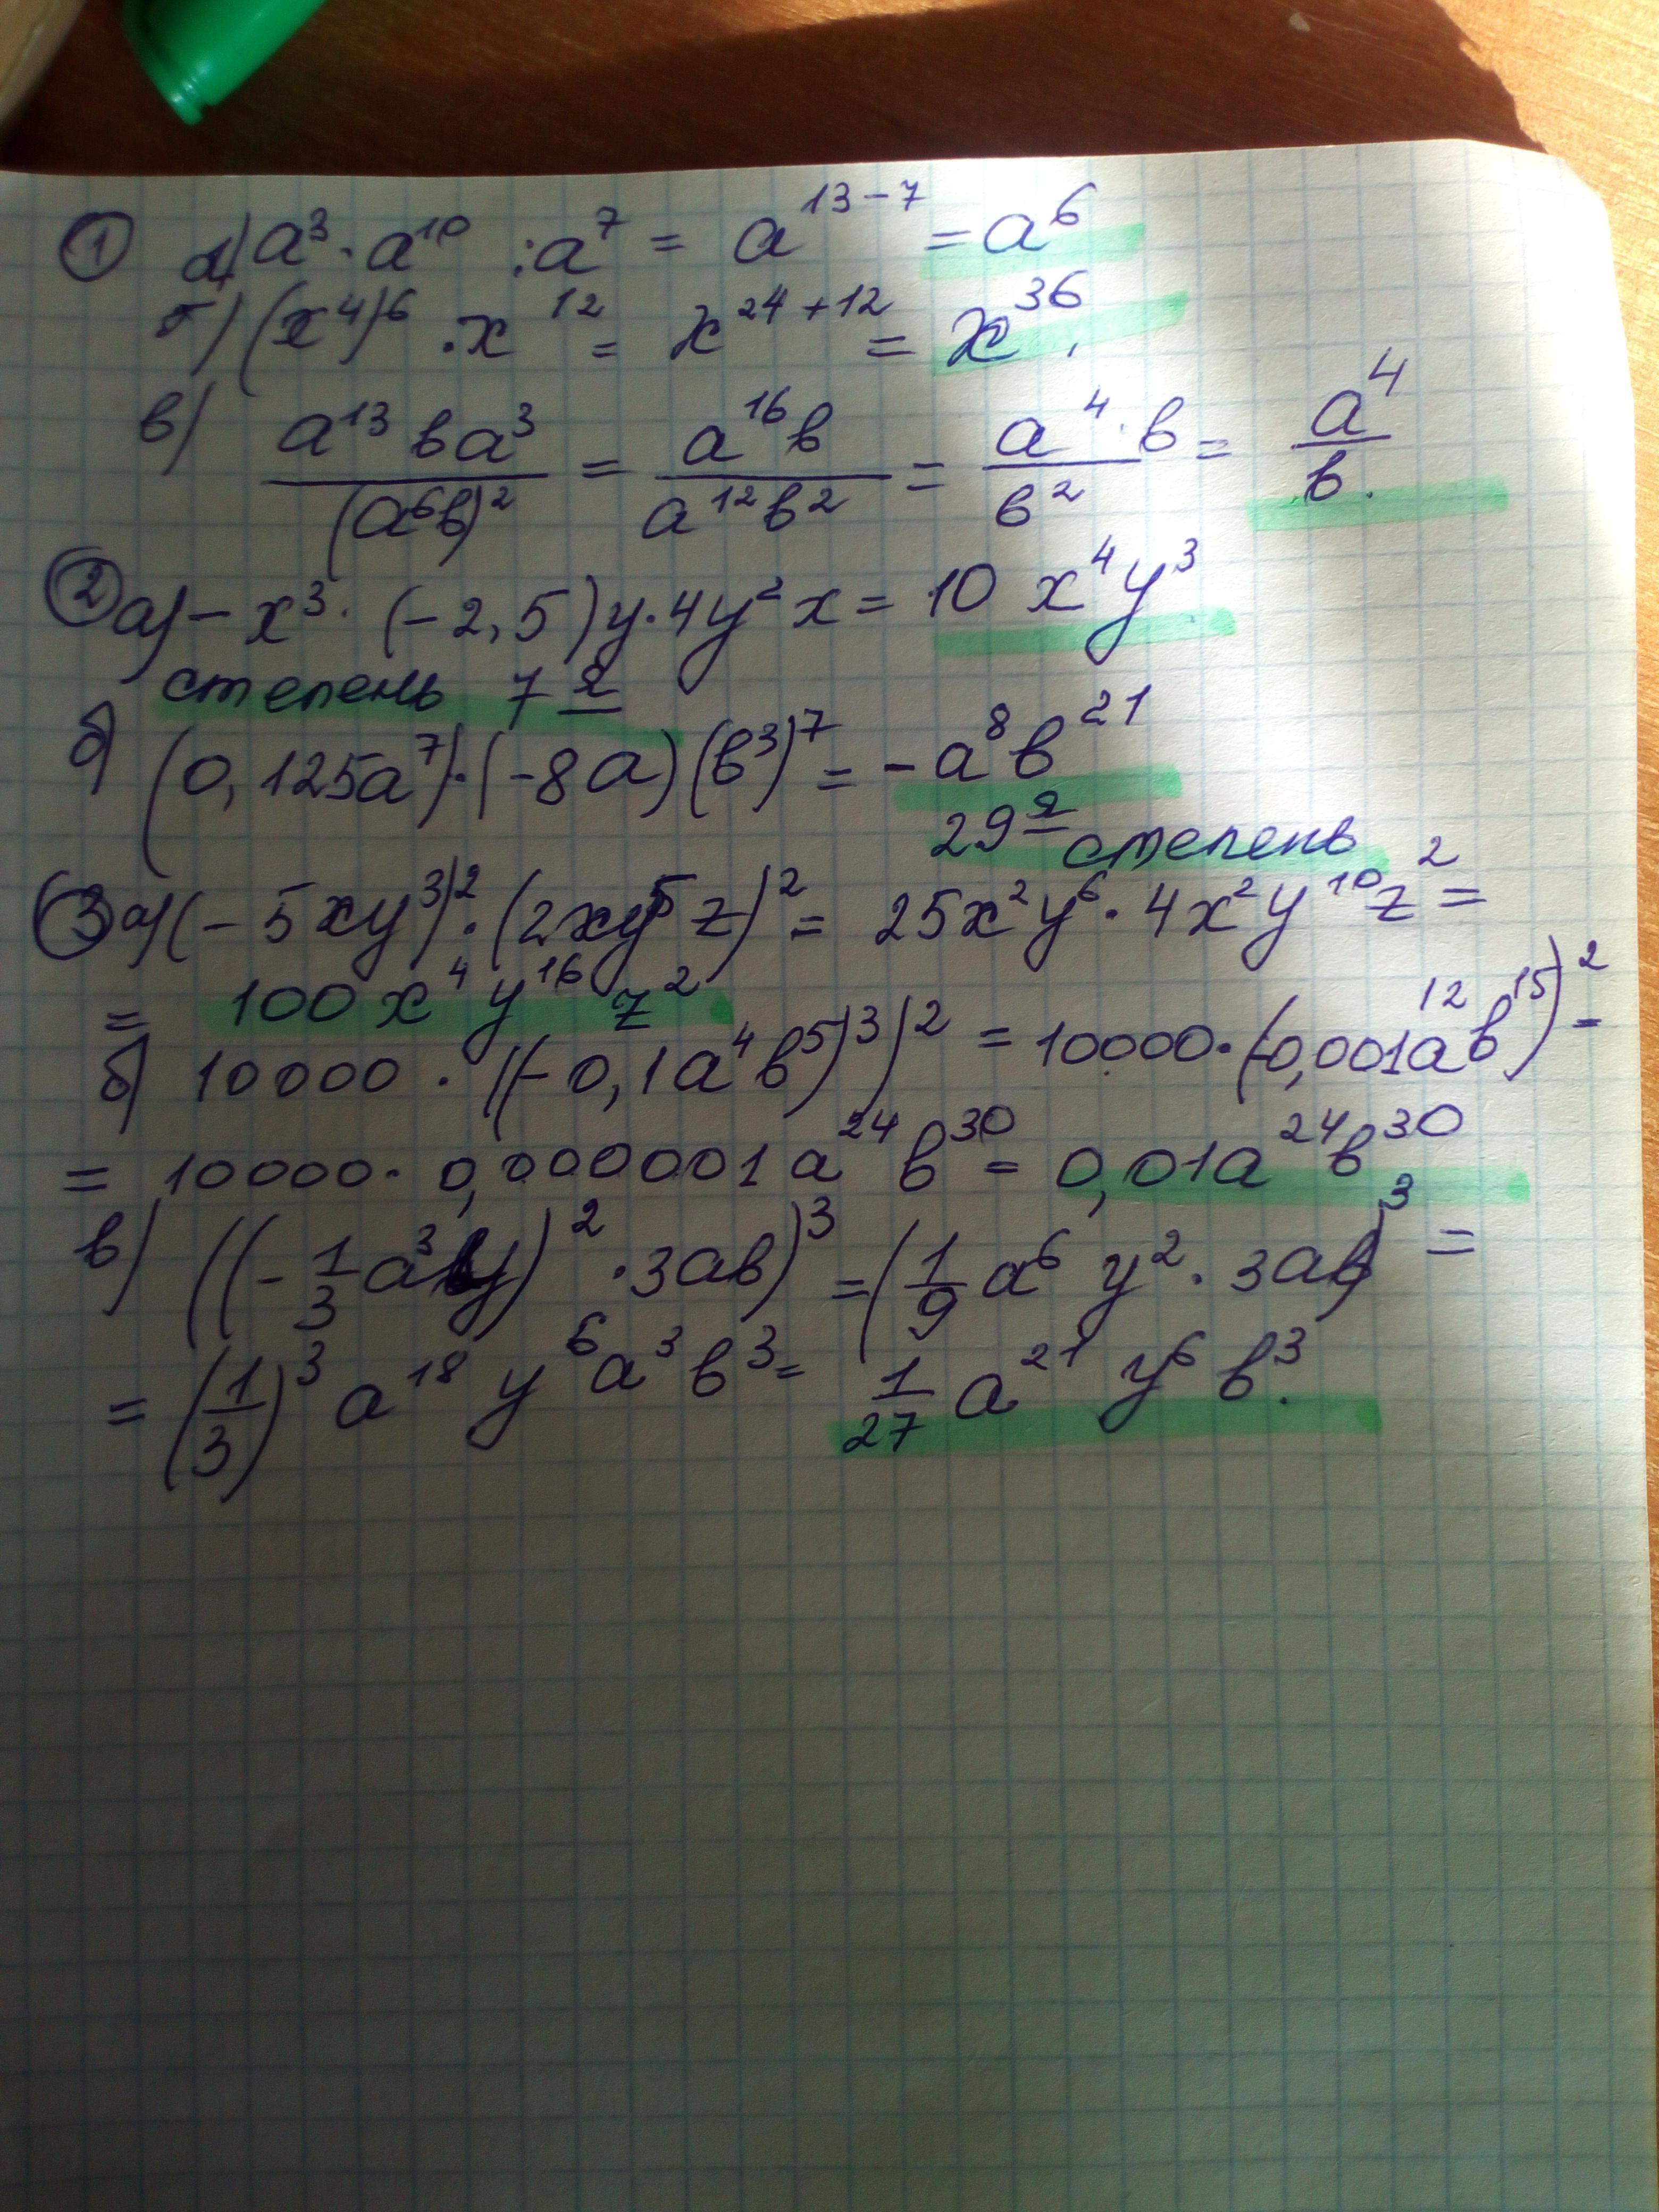 ① а) a³ · a¹⁰ : a⁷ = a¹³⁻⁷ = a⁶
б) (x⁴)⁶ · x¹² = x²⁴⁺¹² = x³⁶.
в) a¹³ba³/(a⁶b)² = a¹⁶b/a¹²b² = a⁴·b/b² = a⁴/b.
② а) – x³ · (–2,5)y·4y²x = 10 x⁴y³
степень 7я
б) (0,125a⁷)·(–8a)(b³)⁷ = –a⁸b²¹
29я степень
③ а) (–5xy³)²·(2xy⁵z)² = 25x²y⁶·4x²y¹⁰z² =
= 100x⁴y¹⁶z²
б) 10000 · ((–0,1a⁴b⁵)³)² = 10000·(–0,001a¹²b¹⁵)² =
= 10000 · 0,000001a²⁴b³⁰ = 0,01a²⁴b³⁰
в) ((–1/3a³y)² · 3ab)³ = (1/9a⁶y² · 3ab)³ =
= (1/3)³ a¹⁸ y⁶a³b³ = 1/27 a²¹ y⁶ b³.